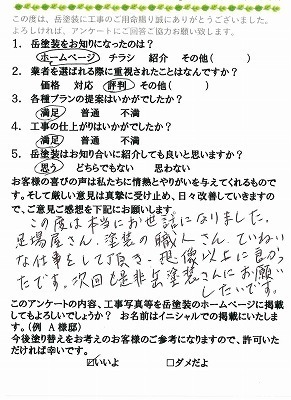 この度は、岳塗装に工事のご用命賜り誠にありがとうございました。
よろしければ、アンケートにご回答ご協力お願い致します。
1. 岳塗装をお知りになったのは?
ホームページ チラシ 紹介 その他( )
2. 業者を選ばれる際に重視されたことはなんですか?
価格 対応 評判 その他( )
3. 各種プランの提案はいかがでしたか?
満足 普通 不満
4. 工事の仕上がりはいかがでしたか?
満足 普通 不満
5. 岳塗装はお知り合いに紹介しても良いと思いますか?
思う どちらでもない 思わない
お客様の喜びの声は私たちに情熱とやりがいを与えてくれるものです。そして厳しい意見は真摯に受け止め、日々改善していきますので、ご意見ご感想を下記にお願いします。
この度は本当にお世話になりました。
足場屋さん、塗装の職人さん、ていねい
な仕事をして頂き、想像以上に良かっ
たです。次回も是非岳塗装さんにお願い
したいです。
このアンケートの内容、工事写真等を岳塗装のホームページに掲載
してもよろしいでしょうか? お名前はイニシャルでの掲載にいたし
ます。(例 A様邸)
今後塗り替えをお考えのお客様のご参考になりますので、許可いた
だければ幸いです。
☑いいよ □ダメだよ